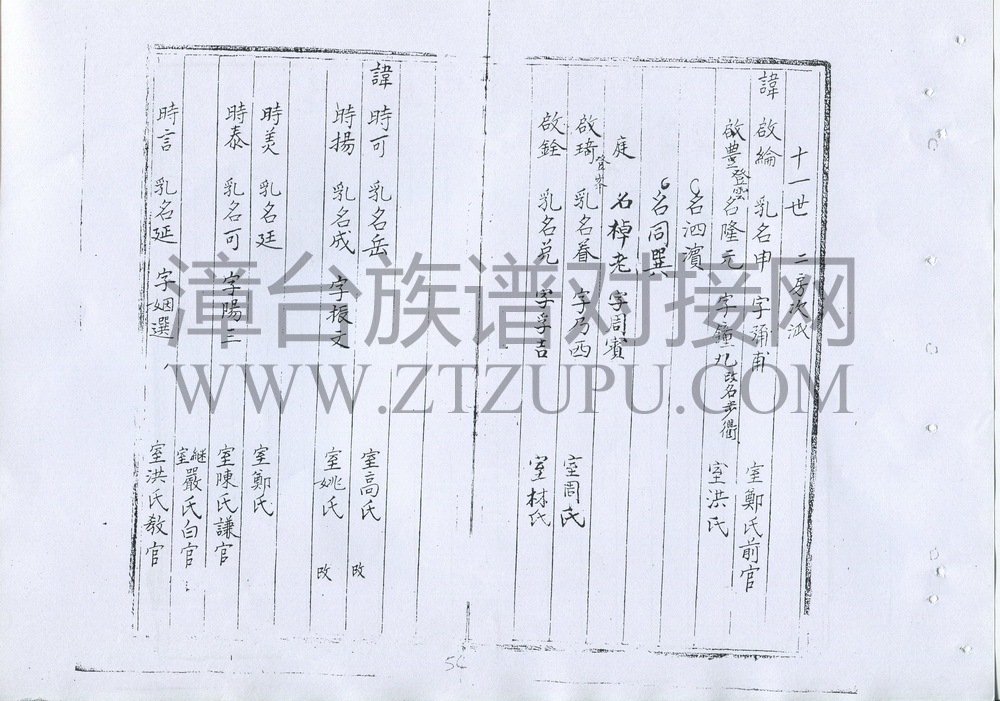 十一世 二房次派
諱 啟綸 乳名申 字彌甫 室鄭氏前官
啟豊 登雲 名隆元 字鐘九 改名步衢 室洪氏
名泗濱
名同選
庭 名棹老 字周賓
啟琦 登 乳名眷 字乃西 室周氏
啟銓 乳名兑 字孚吉 室林氏
諱 時可 乳名岳 室高氏
時揚 乳名成 字振文 室姚氏
時美 乳名廷 室鄭氏
時泰 乳名可 字陽三 室陳氏謙官
繼室嚴氏白官
時言 乳名延 字姻選 室洪氏教官
54
漳台族谱对接网
WWW.ZTZUPU.COM